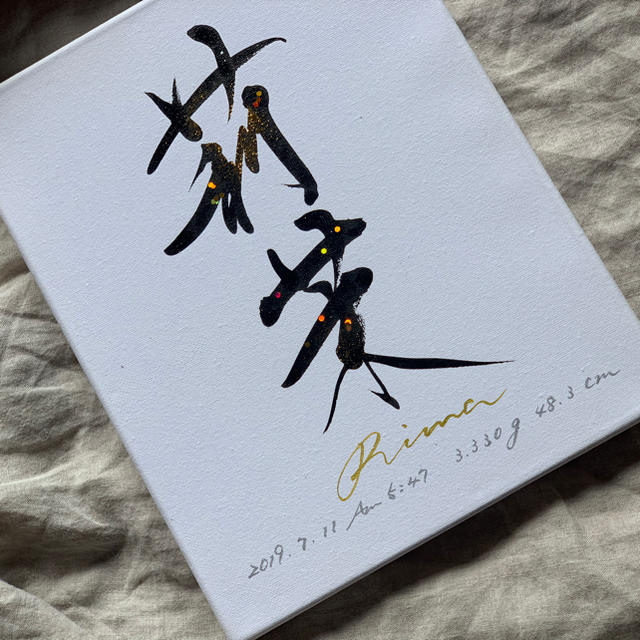 莉愛
Rima
2019.7.11 Am 6:47 3.330g 48.3cm